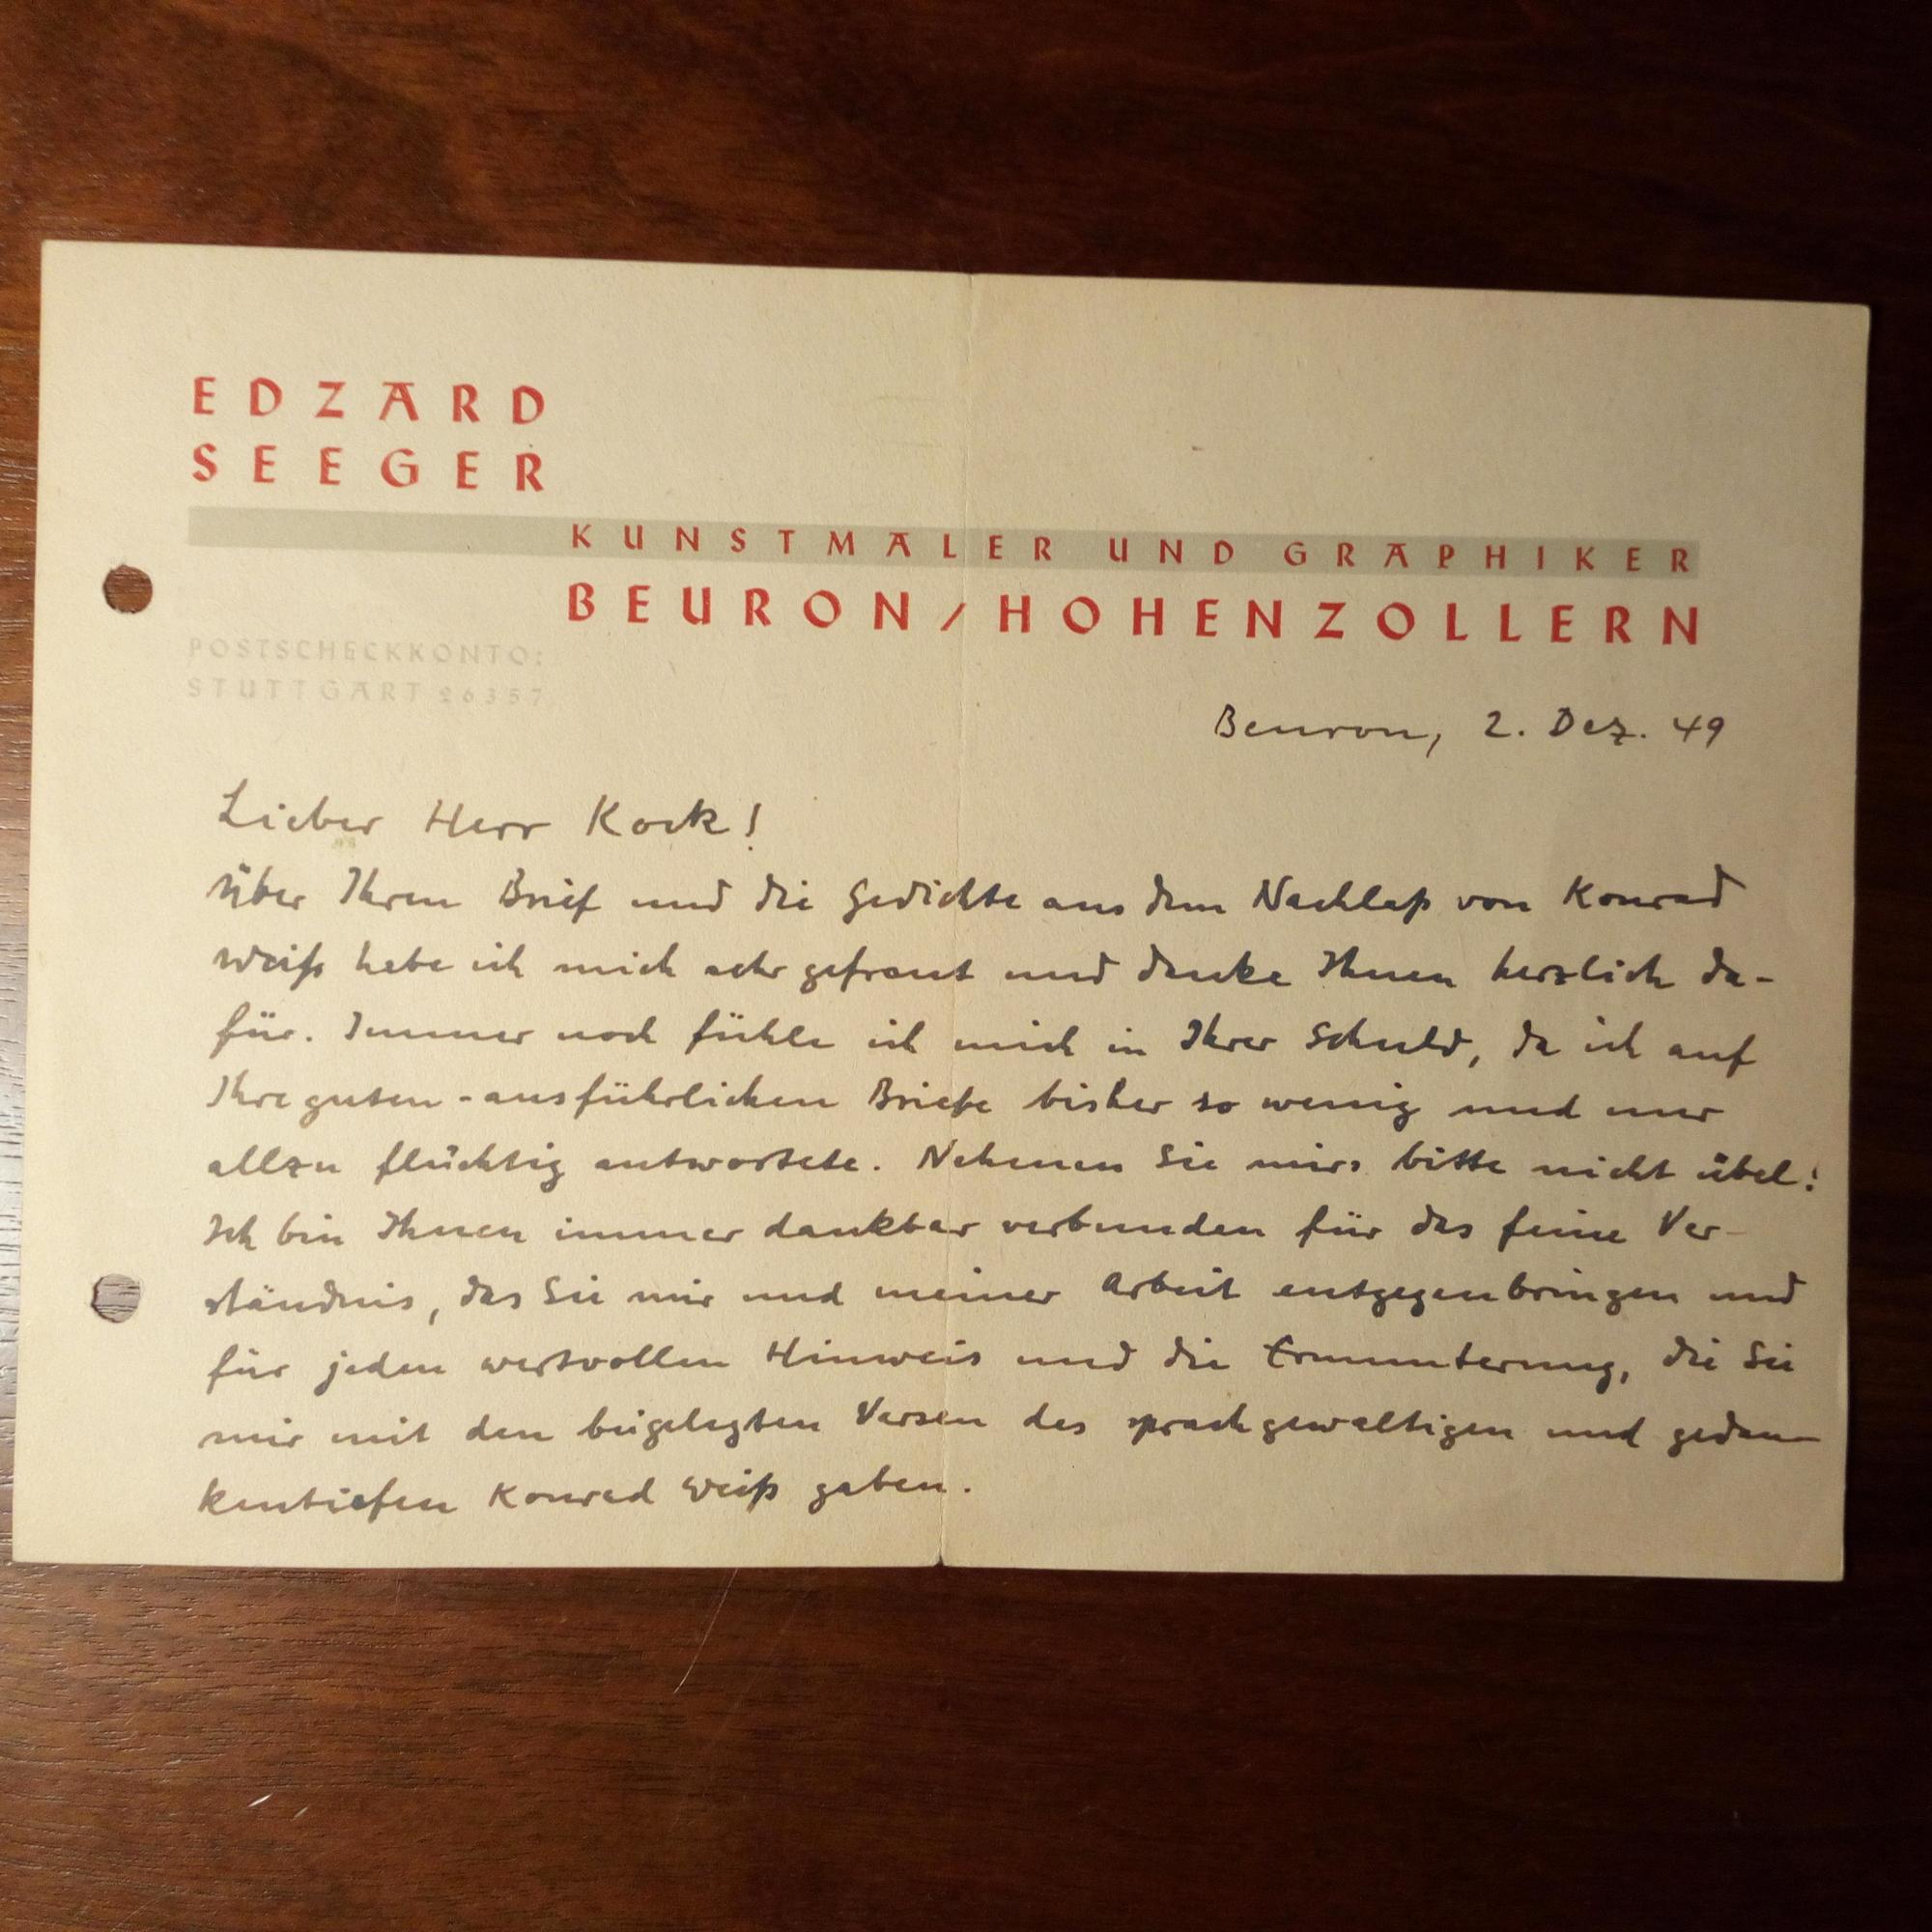 EDZARD
SEEGER
KUNSTMALER UND GRAPHIKER
BEURON/HOHENZOLLERN
POSTSCHECKKONTO:
STUTTGART 26357
Beuron, 2. Dez. 49
Lieber Herr Kock!
Über Ihren Brief und die Gedichte aus dem Nachlaß von Konrad
Weiß habe ich mich sehr gefreut und danke Ihnen herzlich da-
für. Immer noch fühle ich mich in Ihrer Schuld, da ich auf
Ihre guten - ausführlichen Briefe bisher so wenig und nur
allzu flüchtig antwortete. Nehmen Sie mirs bitte nicht übel!
Ich bin Ihnen immer dankbar verbunden für das feine Ver-
ständnis, das Sie mir und meiner Arbeit entgegenbringen und
für jeden wertvollen Hinweis und die Ermunterung, die Sie
mir mit den beigelegten Versen des sprachgewaltigen und gedan-
kentiefen Konrad Weiß gaben.